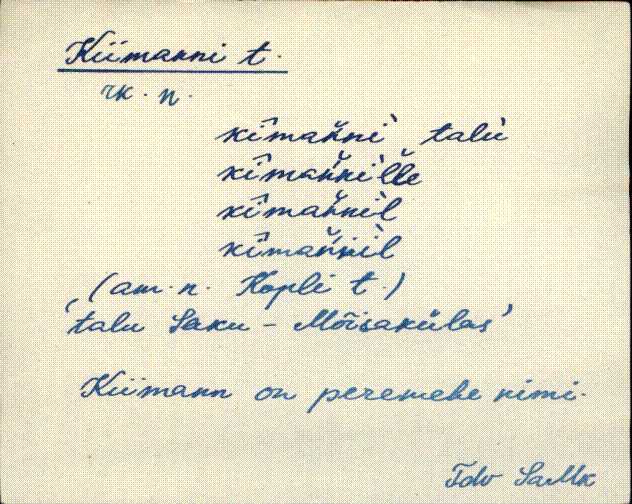 Kiimanni t.
rk. n.
kîmaǹnì talù
kîmaǹnìl̀l̀e
kîmaǹnìl
kîmaǹnìl
(am. n. Kopli t.)
'talu Saku - Mõisakülas'
Kiimann on peremehe nimi.